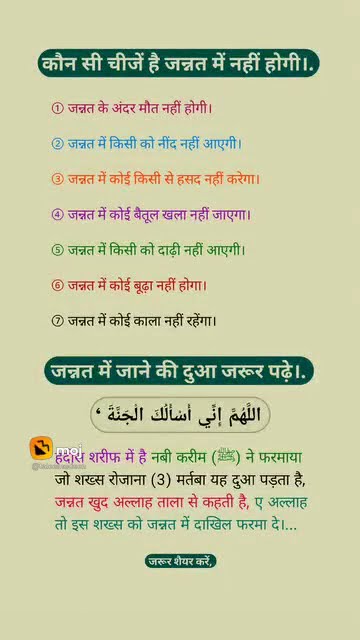 कौन सी चीजें है जन्नत में नहीं होगी।.
① जन्नत के अंदर मौत नहीं होगी।
② जन्नत में किसी को नींद नहीं आएगी।
③ जन्नत में कोई किसी से हसद नहीं करेगा।
④ जन्नत में कोई बैतूल खला नहीं जाएगा।
⑤ जन्नत में किसी को दाढ़ी नहीं आएगी।
⑥ जन्नत में कोई बूढ़ा नहीं होगा।
⑦ जन्नत में कोई काला नहीं रहेंगा।
जन्नत में जाने की दुआ जरूर पढ़े।.
اللَّهُمَّ إِنِّي أَسْأَلُكَ الْجَنَّةَ ،
moj
हदीस शरीफ में है नबी करीम (ﷺ) ने फरमाया
जो शख्स रोजाना (3) मर्तबा यह दुआ पड़ता है,
जन्नत खुद अल्लाह ताला से कहती है, ए अल्लाह
तो इस शख्स को जन्नत में दाखिल फरमा दे।...
जरूर शैयर करें,